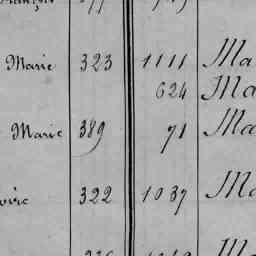 Marie 323 1111 Ma
624 Ma
Marie 389 71 Ma
322 1037 Ma